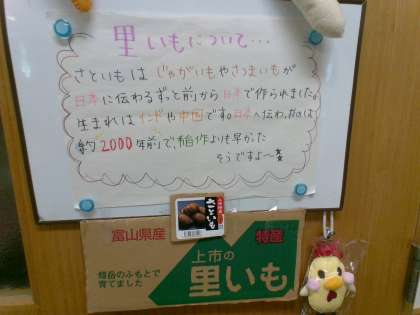 里いもについて…
さといもは じゃがいもやさつまいもが
日本に伝わるずっと前から日本で作られました。
生まれは インドや中国です。日本へ伝わったのは
約2000年前で、稲作よりも早かった
そうですよ〜
さといも
富山県産
特産
上市の
里いも
のふもとで
育てました